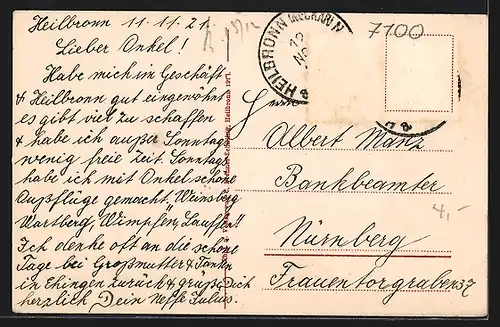 Heilbronn 11.11.21.
Lieber Onkel!
Habe mich in Geschäft
& Heilbronn gut eingewöhnt
es gibt viel zu schaffen
& habe ich außer Sonntags
wenig freie Zeit. Sonntags
habe ich mit Onkel schöne
Ausflüge gemacht. Weinsberg
Wartberg, Wimpfen, Lauffen!!
Ich denke oft an die schöne
Tage bei Großmutter & Tanten
in Ehingen zurück & grüße Dich
herzlich Dein Neffe Julius.
HEILBRONN (NECKAR)
7100
Herrn
Albert Manz
Bankbeamter
Nürnberg
Frauentorgraben 37
4,-
Heilbronn 1917.